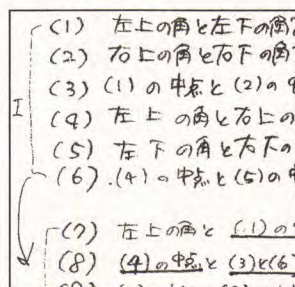 (1) 左上の角と左下の角
(2) 右上の角と右下の角
(3) (1)の中点と(2)の中
I (4) 左上の角と右上の
(5) 左下の角と右下の
(6) (4)の中点と(5)の中
(7) 左上の角と (1)の
(8) (4)の中点と (3)と(6)